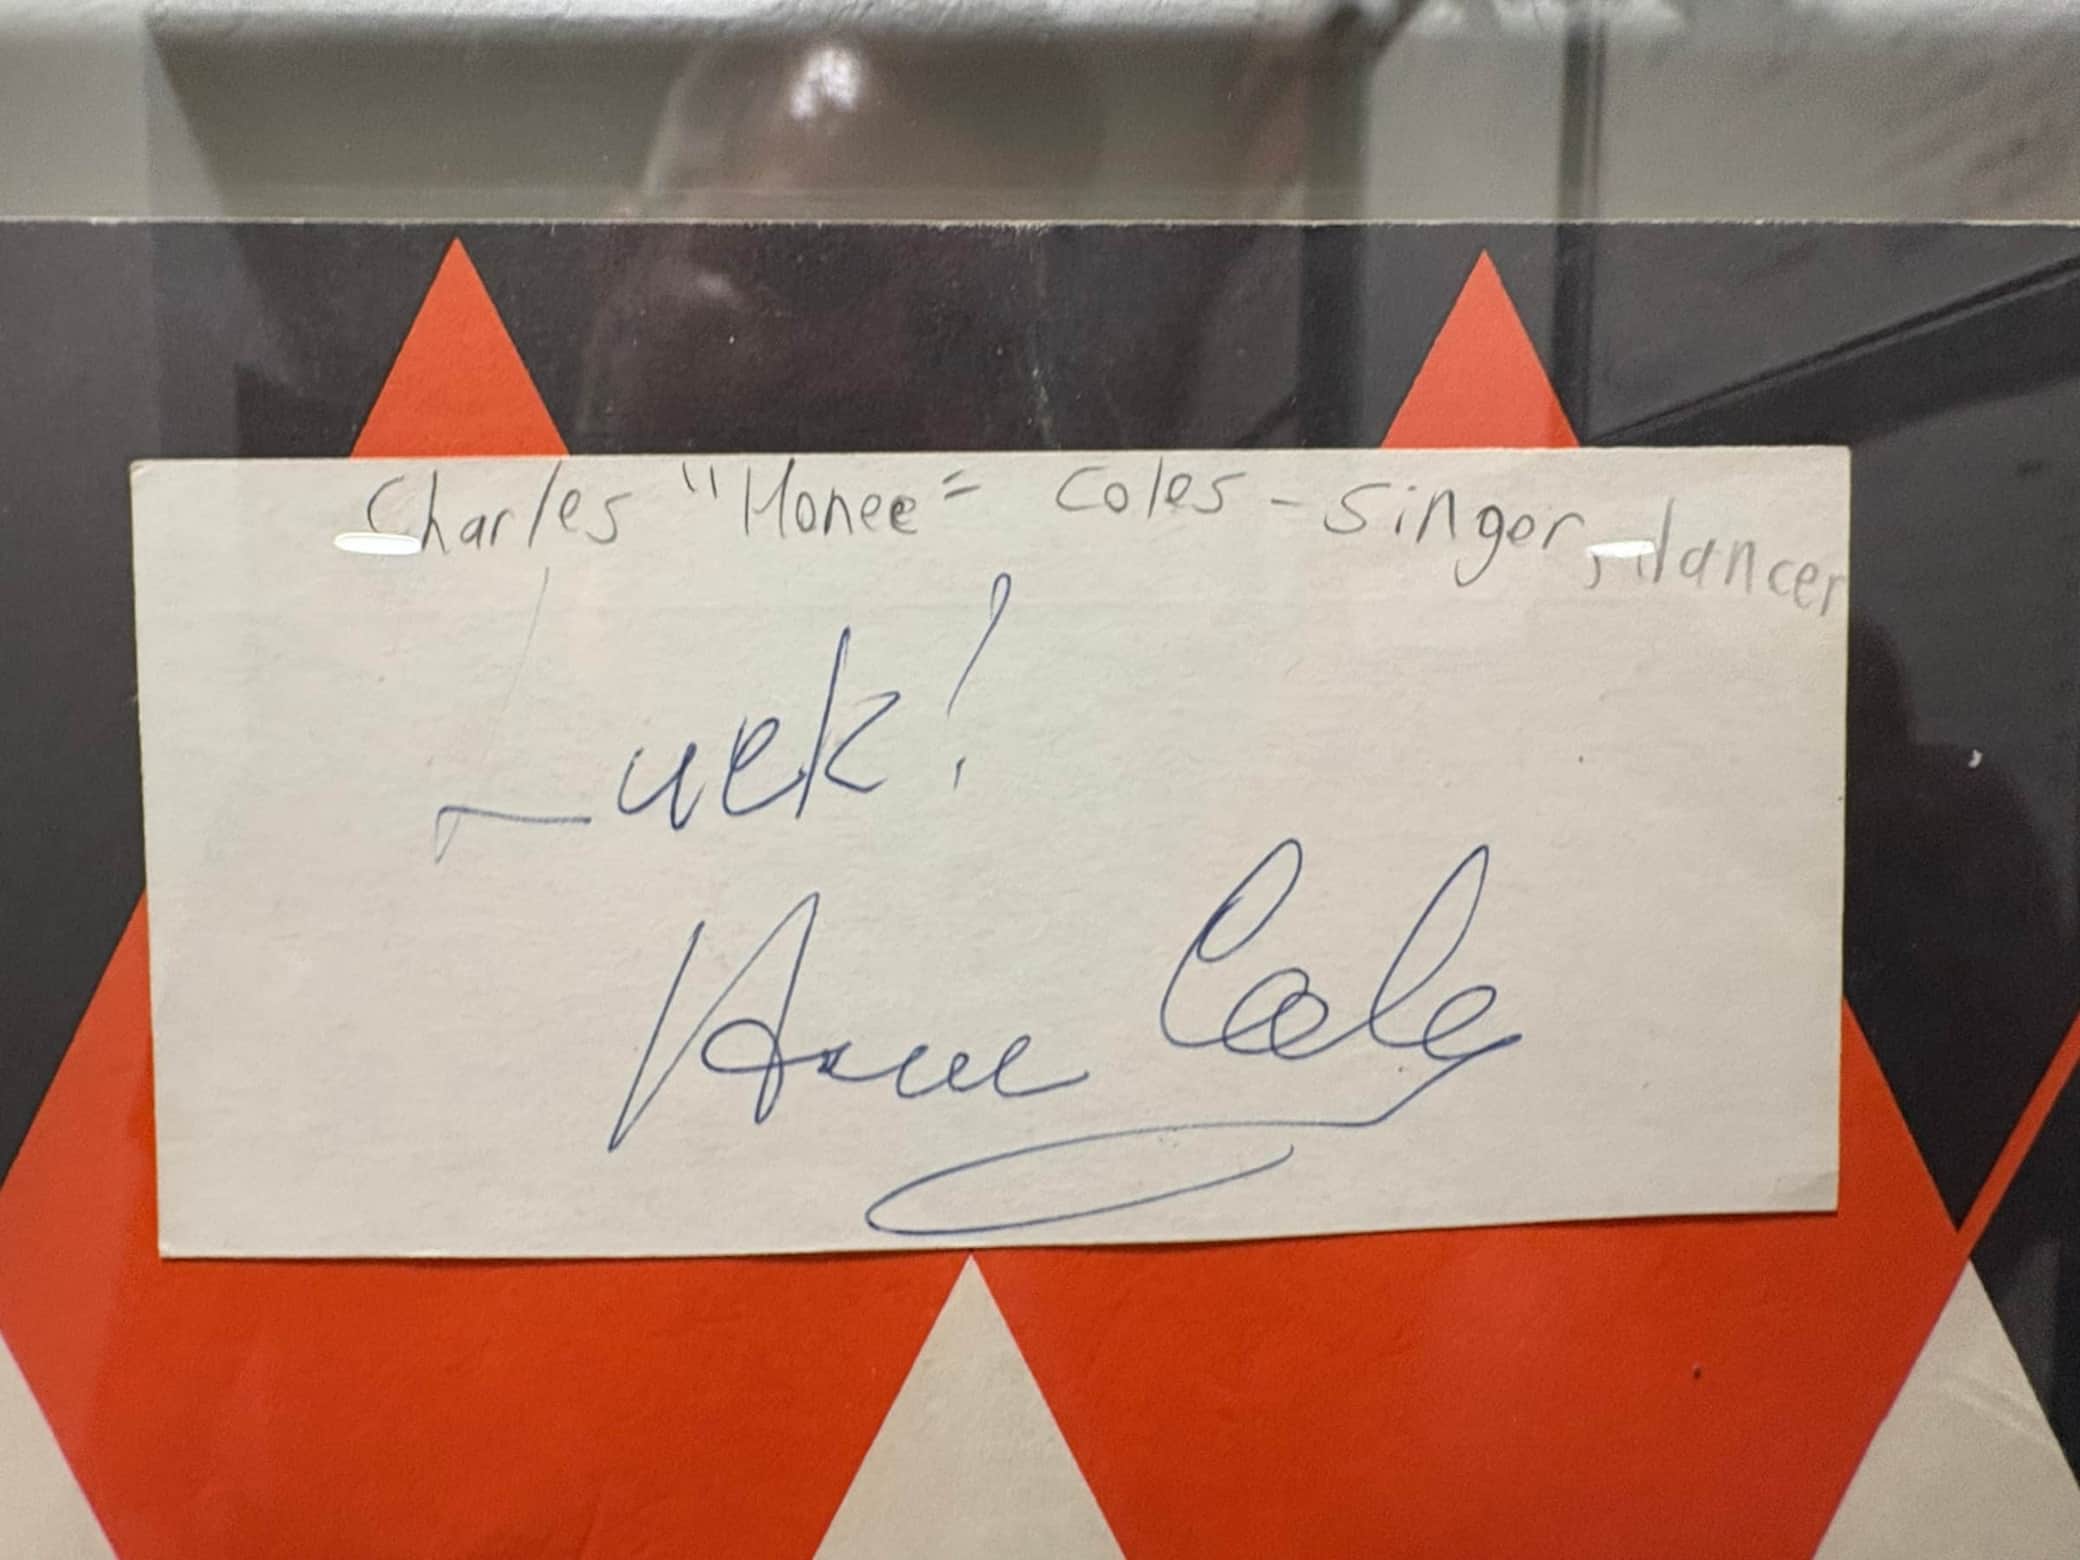 Charles "Honee" Coles - Singer, dancer
Luck!
Honi Coles